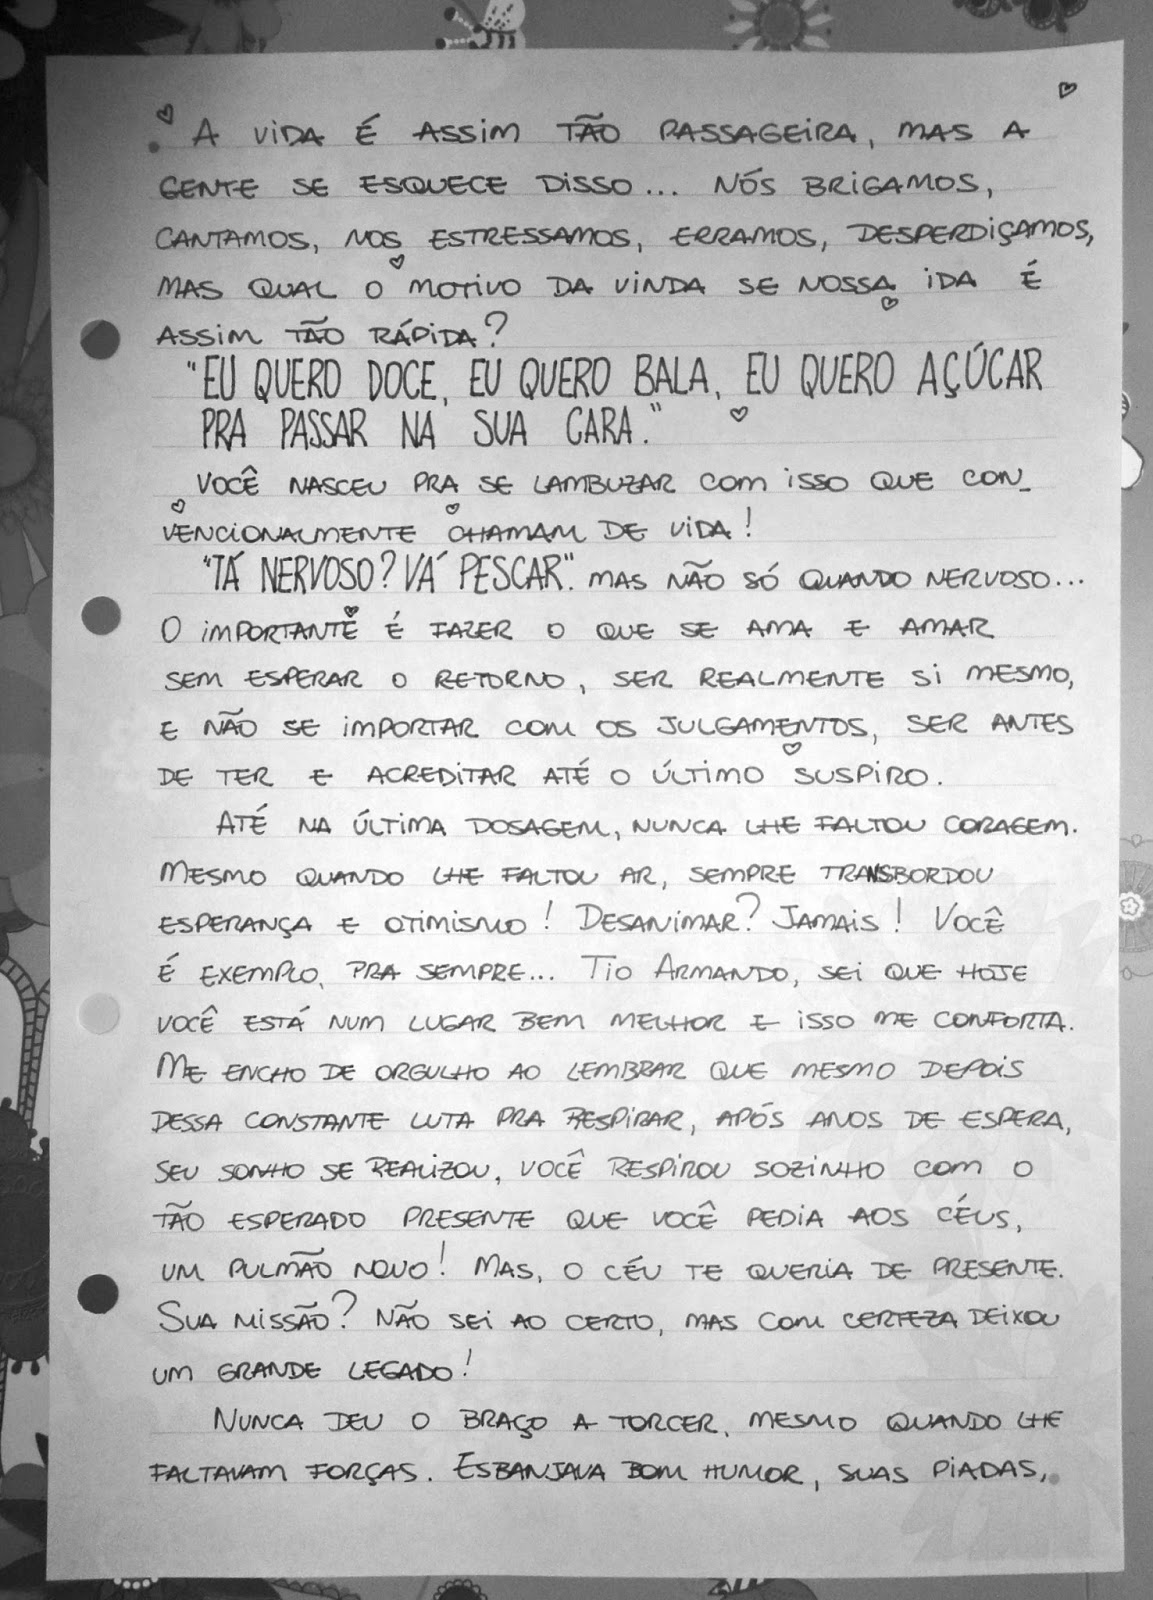 A VIDA É ASSIM TÃO PASSAGEIRA, MAS A
GENTE SE ESQUECE DISSO... NÓS BRIGAMOS,
CANTAMOS, NOS ESTRESSAMOS, ERRAMOS, DESPERDIÇAMOS,
MAS QUAL O MOTIVO DA VINDA SE NOSSA IDA É
ASSIM TÃO RÁPIDA?
"EU QUERO DOCE, EU QUERO BALA, EU QUERO AÇÚCAR
PRA PASSAR NA SUA CARA."
VOCÊ NASCEU PRA SE LAMBUZAR COM ISSO QUE CON_
VENCIONALMENTE CHAMAM DE VIDA!
"TÁ NERVOSO? VÁ PESCAR". MAS NÃO SÓ QUANDO NERVOSO...
O IMPORTANTE É FAZER O QUE SE AMA E AMAR
SEM ESPERAR O RETORNO, SER REALMENTE SI MESMO,
E NÃO SE IMPORTAR COM OS JULGAMENTOS, SER ANTES
DE TER E ACREDITAR ATÉ O ÚLTIMO SUSPIRO.
ATÉ NA ÚLTIMA DOSAGEM, NUNCA LHE FALTOU CORAGEM.
MESMO QUANDO LHE FALTOU AR, SEMPRE TRANSBORDOU
ESPERANÇA E OTIMISMO! DESANIMAR? JAMAIS! VOCÊ
É EXEMPLO, PRA SEMPRE... TIO ARMANDO, SEI QUE HOJE
VOCÊ ESTÁ NUM LUGAR BEM MELHOR E ISSO ME CONFORTA.
ME ENCHO DE ORGULHO AO LEMBRAR QUE MESMO DEPOIS
DESSA CONSTANTE LUTA PRA RESPIRAR, APÓS ANOS DE ESPERA,
SEU SONHO SE REALIZOU, VOCÊ RESPIROU SOZINHO COM O
TÃO ESPERADO PRESENTE QUE VOCÊ PEDIA AOS CÉUS,
UM PULMÃO NOVO! MAS, O CÉU TE QUERIA DE PRESENTE.
SUA MISSÃO? NÃO SEI AO CERTO, MAS COM CERTEZA DEIXOU
UM GRANDE LEGADO!
NUNCA DEU O BRAÇO A TORCER, MESMO QUANDO LHE
FALTAVAM FORÇAS. ESBANJAVA BOM HUMOR, SUAS PIADAS,